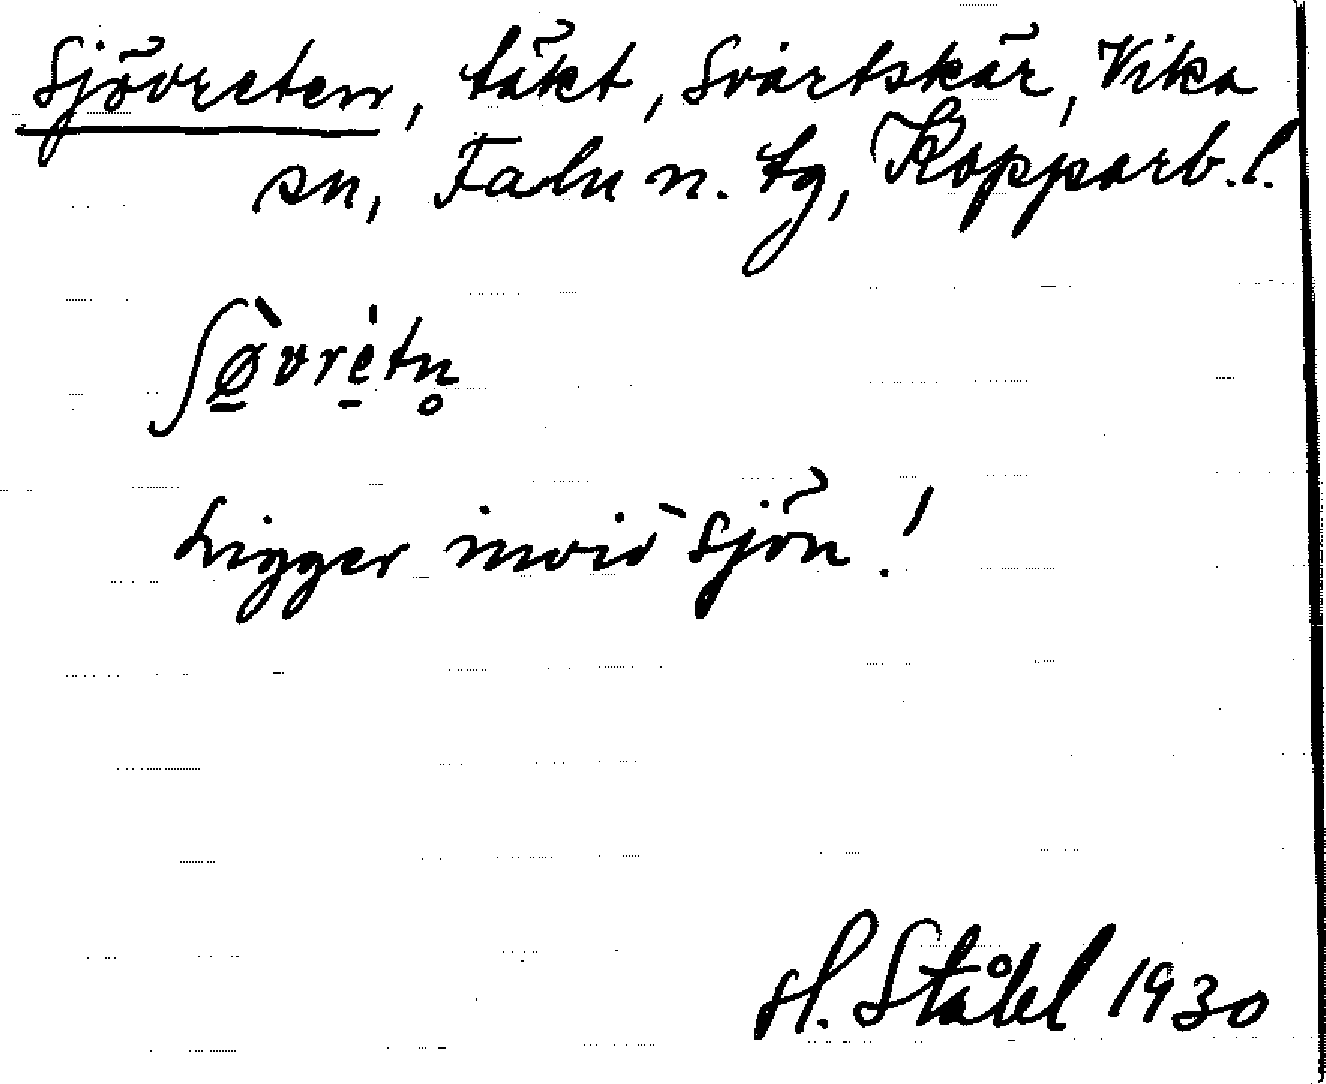 Sjövreten, täkt, Svartskär, Vika
sn, Falu n. tg, Kopparb.l.
ʃø̠̀vre̠tn̥
Ligger invid sjön!
H. Ståhl 1930